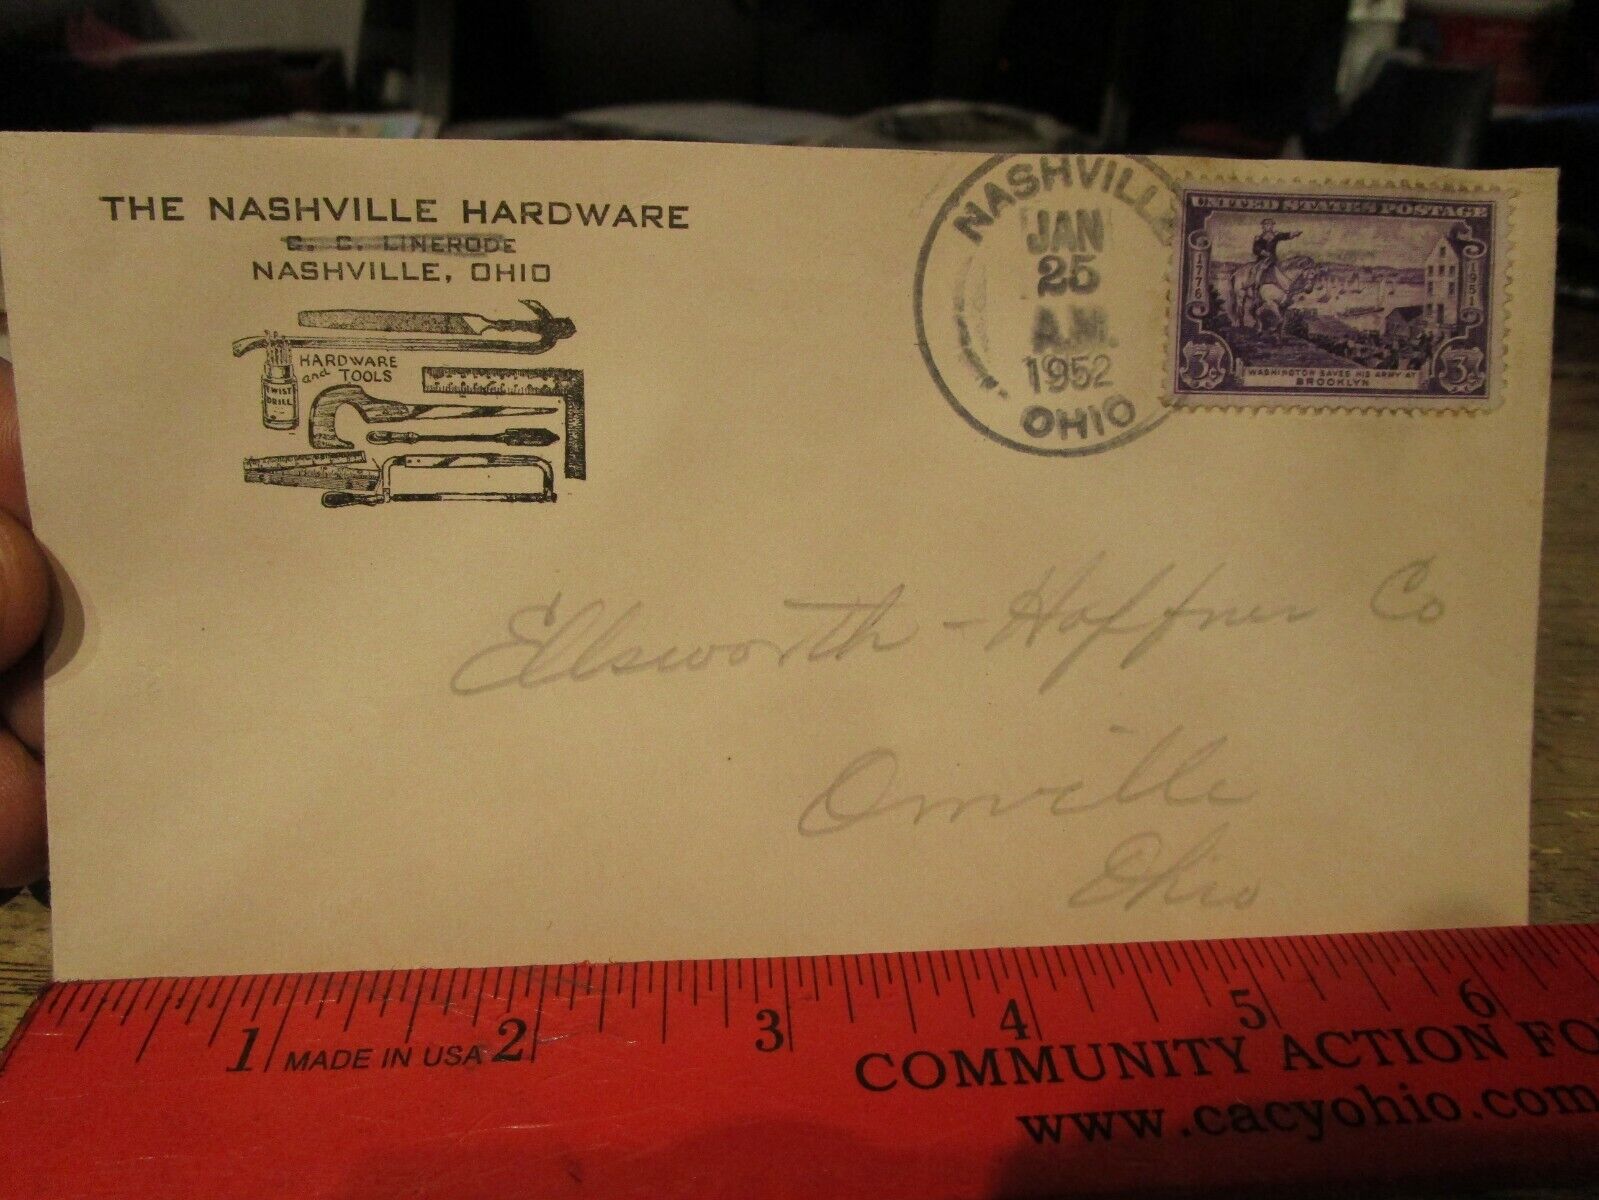 THE NASHVILLE HARDWARE
C. C. LINERODE
NASHVILLE, OHIO
HARDWARE
and TOOLS
TWIST
DRILL
NASHVILLE
JAN
25
A.M.
1952
OHIO
UNITED STATES POSTAGE
1776
1951
3¢
3¢
WASHINGTON SAVES HIS ARMY AT
BROOKLYN
Ellsworth - Haffner Co
Orrville
Ohio
1 MADE IN USA 2 3 4 5 6
COMMUNITY ACTION FO
www.cacyohio.com